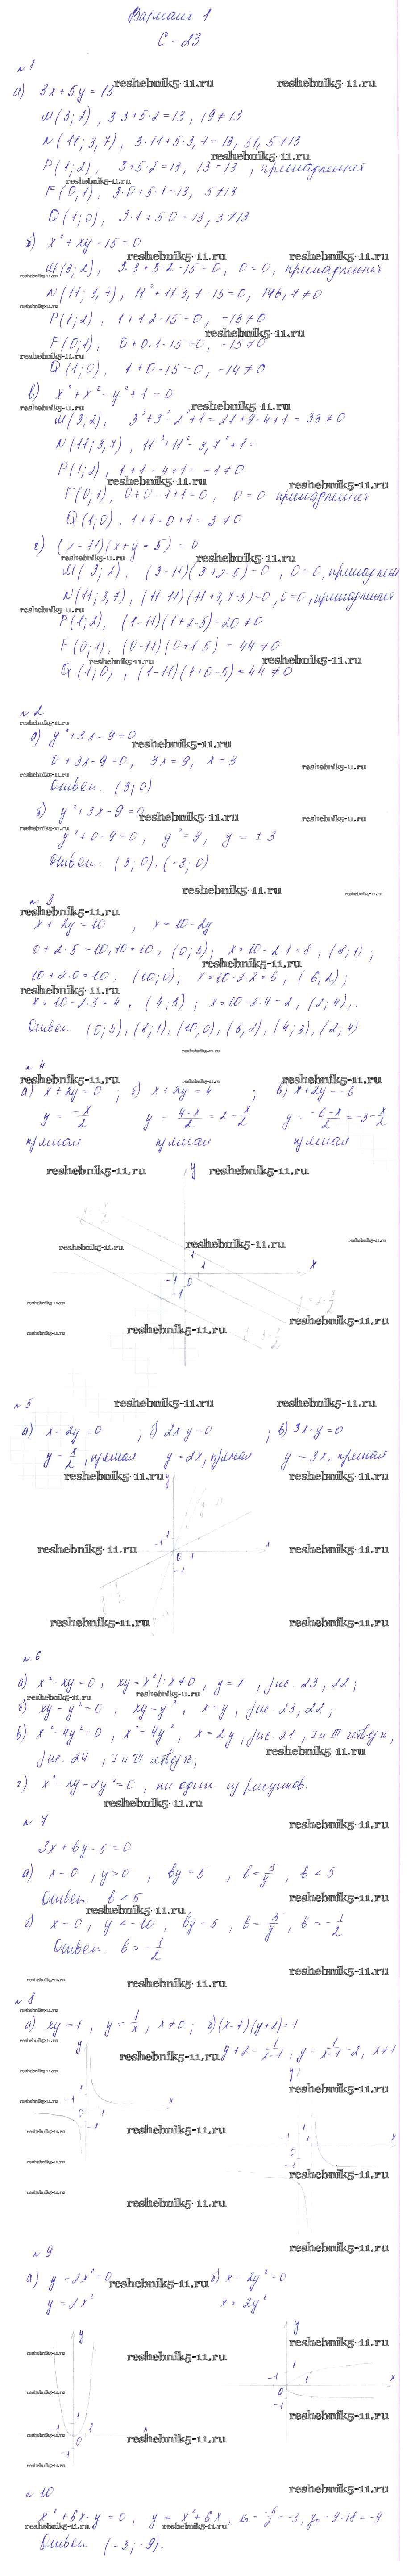 Вариант 1
С-23
№1
а) 3x+5y=13
M(3;2), 3·3+5·2=13, 19≠13
N(11;3,7), 3·11+5·3,7=13, 51,5≠13
P(1;2), 3+5·2=13, 13=13, принадлежит
F(0;1), 3·0+5·1=13, 5≠13
Q(1;0), 3·1+5·0=13, 3≠13
б) x²+xy-15=0
M(3;2), 3·3+3·2-15=0, 0=0, принадлежит
N(11;3,7), 11²+11·3,7-15=0, 146,7≠0
P(1;2), 1+1·2-15=0, -13≠0
F(0;1), 0+0·1-15=0, -15≠0
Q(1;0), 1+0-15=0, -14≠0
в) x³+x²-y²+1=0
M(3;2), 3³+3²-2²+1=27+9-4+1=33≠0
N(11;3,7), 11³+11²-3,7²+1=
P(1;2), 1+1-4+1=-1≠0
F(0,1), 0+0-1+1=0, 0=0 принадлежит
Q(1;0), 1+1-0+1=3≠0
г) (x-11)(x+y-5)=0
M(3;2), (3-11)(3+2-5)=0, 0=0, принадлежит
N(11;3,7), (11-11)(11+3,7-5)=0, 0=0, принадлежит
P(1;2), (1-11)(1+2-5)=20≠0
F(0;1), (0-11)(0+1-5)=44≠0
Q(1;0), (1-11)(1+0-5)=44≠0
№2
а) y²+3x-9=0
0+3x-9=0, 3x=9, x=3
Ответ: (3;0)
б) y²+3x-9=0
y²+0-9=0, y²=9, y=±3
Ответ: (3;0), (-3;0)
№3
x+2y=10, x=10-2y
0+2·5=10, 10=10, (0;5); x=10-2·1=8, (8;1);
10+2·0=10, (10;0); x=10-2·2=6, (6;2);
x=10-2·3=4, (4;3); x=10-2·4=2, (2;4),.
Ответ: (0;5), (8;1), (10;0), (6;2), (4;3), (2;4)
№4
а) x+2y=0; б) x+2y=4; в) x+2y=-6
y=-x/2 y=(4-x)/2=2-x/2 y=(-6-x)/2=-3-x/2
прямая прямая прямая
y
1
-1 0 1 x
-1
№5
а) x-2y=0; б) 2x-y=0; в) 3x-y=0
y=x/2, прямая y=2x, прямая y=3x, прямая
y
1
-1 0 1 x
-1
№6
а) x²-xy=0, xy=x²|:x≠0, y=x, рис. 23, 22;
б) xy-y²=0, xy=y², x=y, рис. 23, 22;
в) x²-4y²=0, x²=4y², x=2y, рис. 21, I и III четверть,
рис. 24, I и III четверть;
г) x²-xy-2y²=0, ни один из рисунков.
№7
3x+by-5=0
а) x=0, y>0, by=5, b=5/y, b<5
Ответ: b<5
б) x=0, y<-10, by=5, b=5/y, b>-1/2
Ответ: b>-1/2
№8
а) xy=1, y=1/x, x≠0; б) (x-1)(y+2)=1
y+2=1/(x-1), y=1/(x-1)-2, x≠1
y y
-1 1 x
0 1
-1
№9
а) y-2x²=0 б) x-2y²=0
y=2x² x=2y²
y y
1 1
-1 0 1 x 0 1 x
-1 -1
№10
x²+6x-y=0, y=x²+6x, x₀=-6/2=-3, y₀=9-18=-9
Ответ: (-3;-9).
reshebnik5-11.ru